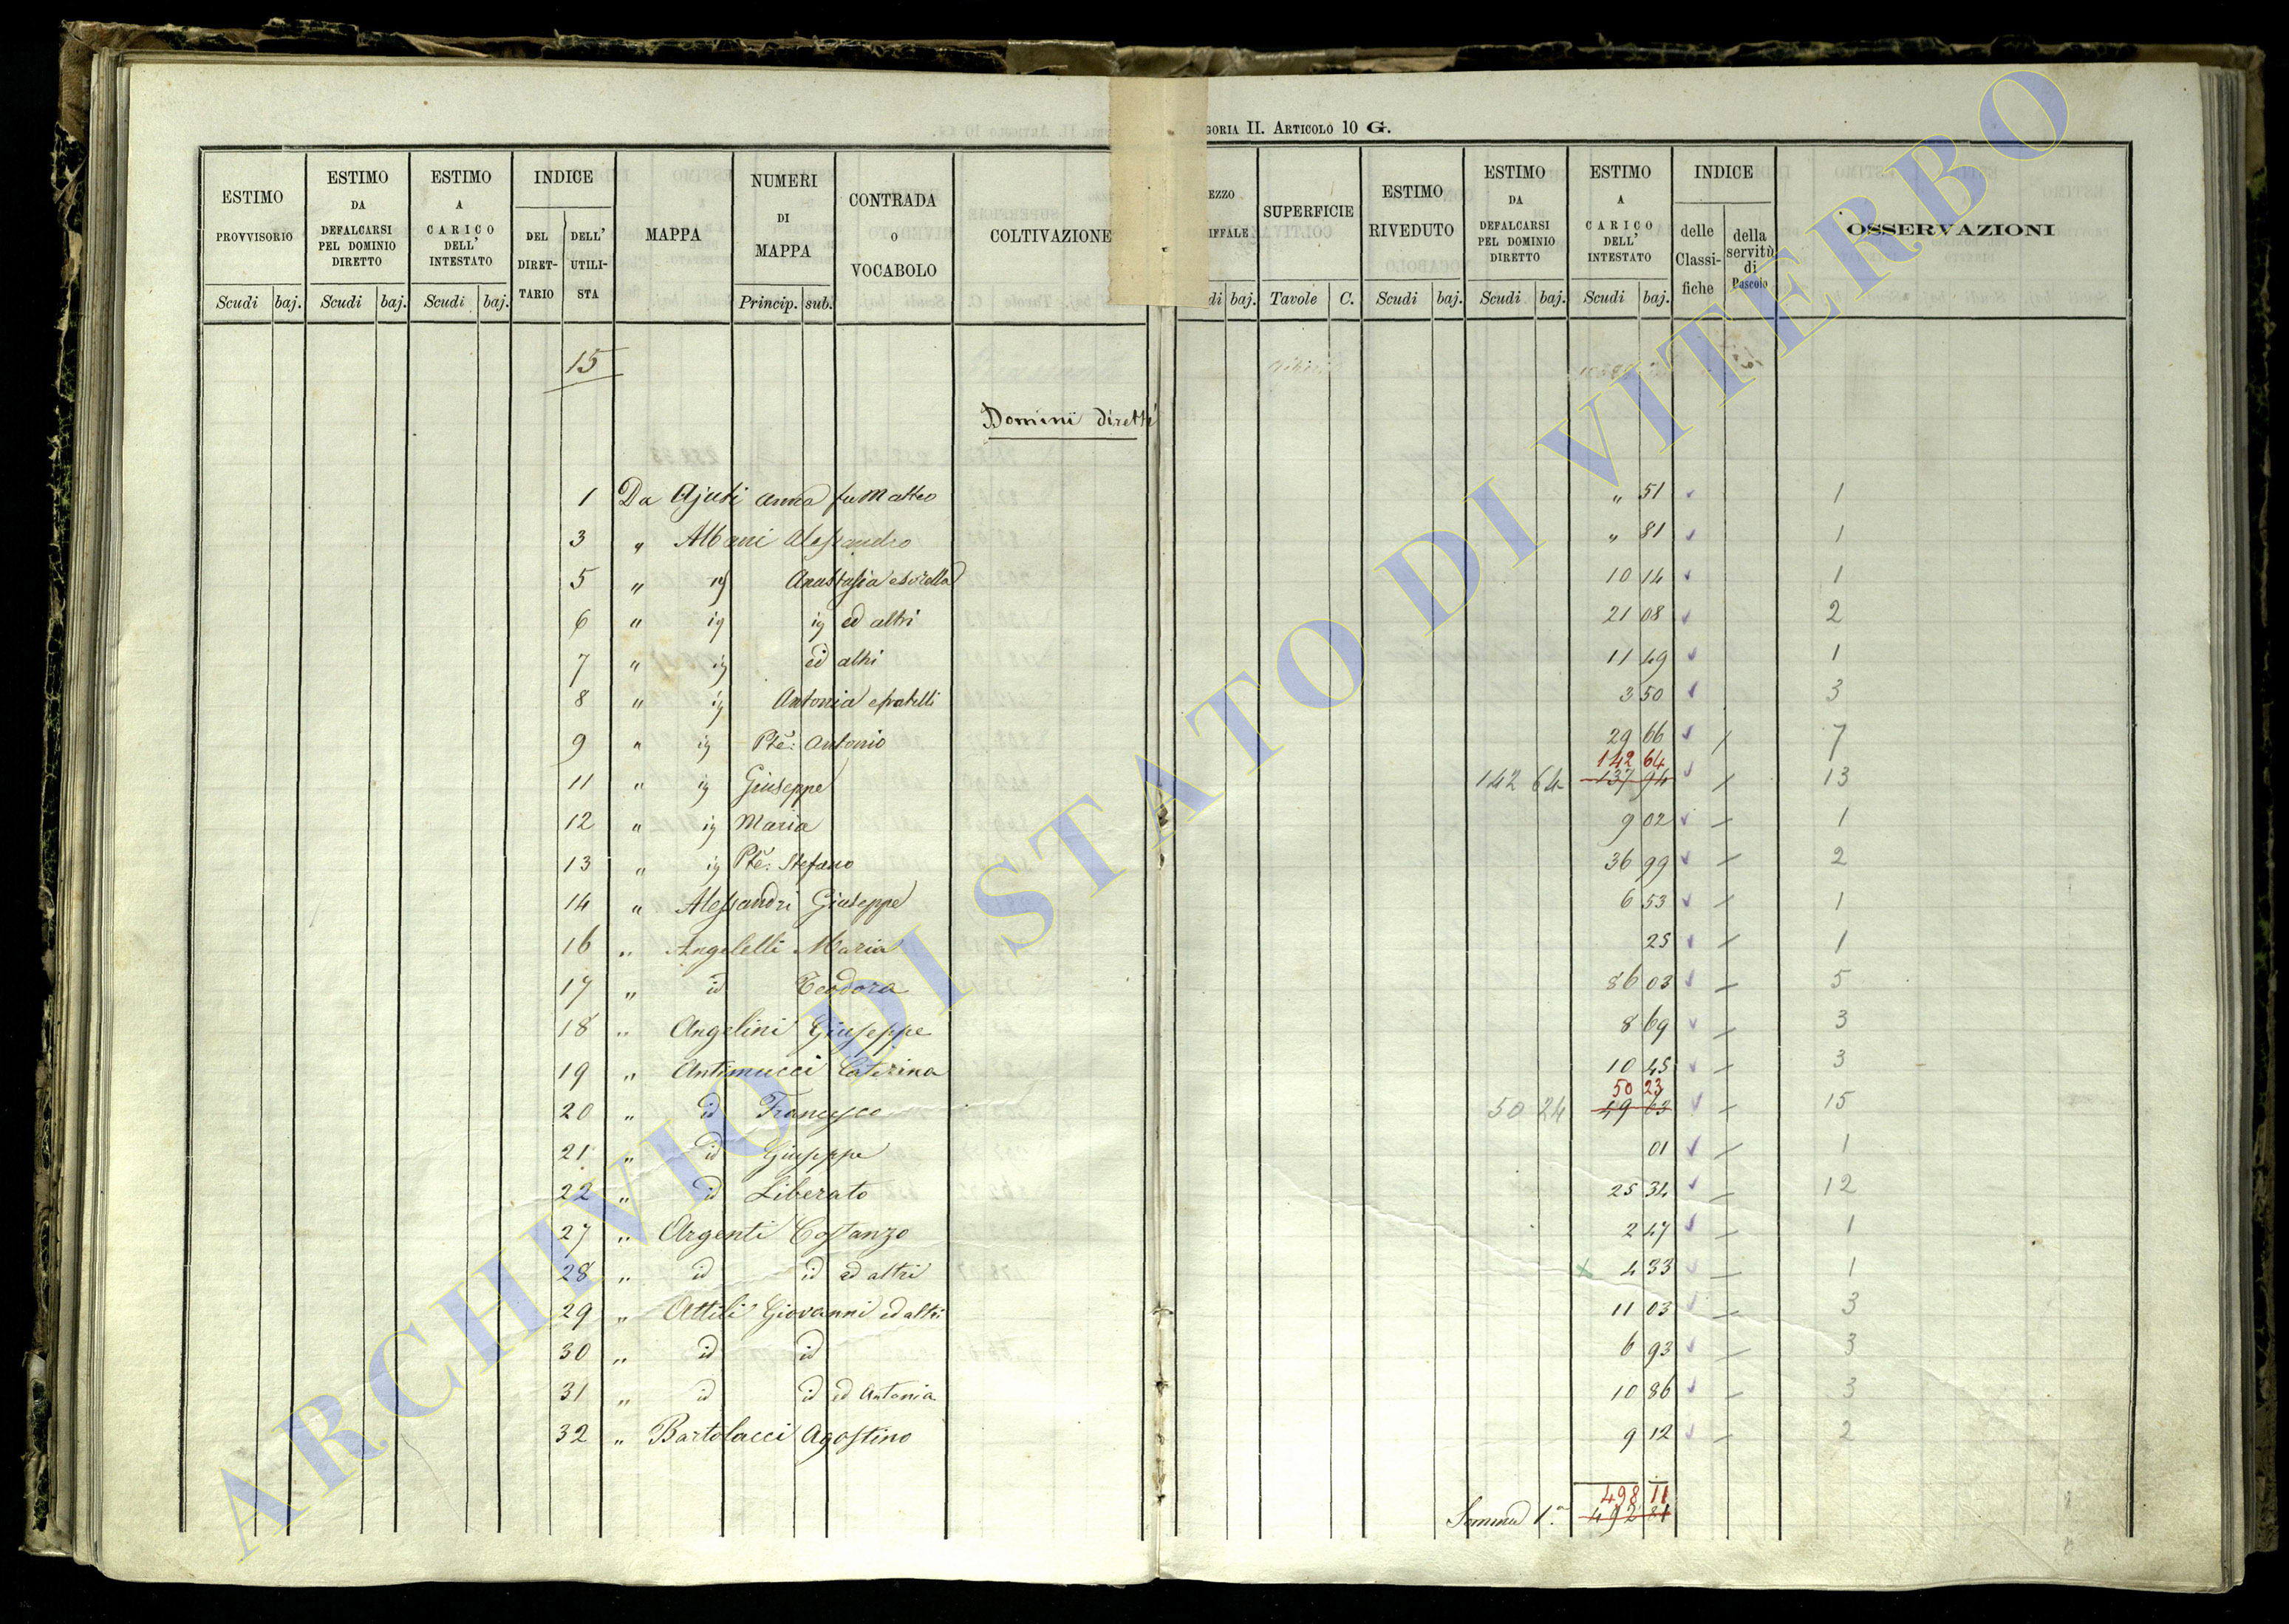 GORIA II. ARTICOLO 10 G.
ESTIMO PROVVISORIO
ESTIMO DA DEFALCARSI PEL DOMINIO DIRETTO
ESTIMO A CARICO DELL' INTESTATO
INDICE
DEL DIRETTARIO
DELL' UTILISTA
MAPPA
NUMERI DI MAPPA
CONTRADA O VOCABOLO
COLTIVAZIONE
EZZO
IFFALE
SUPERFICIE
ESTIMO RIVEDUTO
ESTIMO DA DEFALCARSI PEL DOMINIO DIRETTO
ESTIMO A CARICO DELL' INTESTATO
INDICE
delle Classifiche
della servitù di Pascolo
OSSERVAZIONI
Scudi baj. Scudi baj. Scudi baj. Princip. sub. di baj. Tavole C. Scudi baj. Scudi baj. Scudi baj.
15
Domini diretti
1 Da Ajuti Anna fu Matteo " 51 1
3 " Albani Alessandro " 81 1
5 " id Anastasia e sorella 10 14 1
6 " id id ed altri 21 08 2
7 " id ed altri 11 49 1
8 " id Antonia e fratelli 3 50 3
9 " id Ptē: Antonio 29 66 7
142 64
11 " id Giuseppe 142 64 137 94 13
12 " id Maria 9 02 1
13 " id Ptē: Stefano 36 99 2
14 " Alessandri Giuseppe 6 53 1
16 " Angelelli Maria 25 1
17 " id Teodora 86 03 5
18 " Angelini Giuseppe 8 69 3
19 " Antimucci Caterina 10 45 3
50 23
20 " id Francesco 50 24 49 63 15
21 " id Giuseppe 01 1
22 " id Liberato 25 34 12
27 " Argenti Costanzo 2 47 1
28 " id id ed altri 4 33 1
29 " Attili Giovanni ed altri 11 03 3
30 " id id 6 93 3
31 " id id ed Antonia 10 86 3
32 " Bartolacci Agostino 9 12 2
498 11
Somma 1.a 492 81
ARCHIVIO DI STATO DI VITERBO